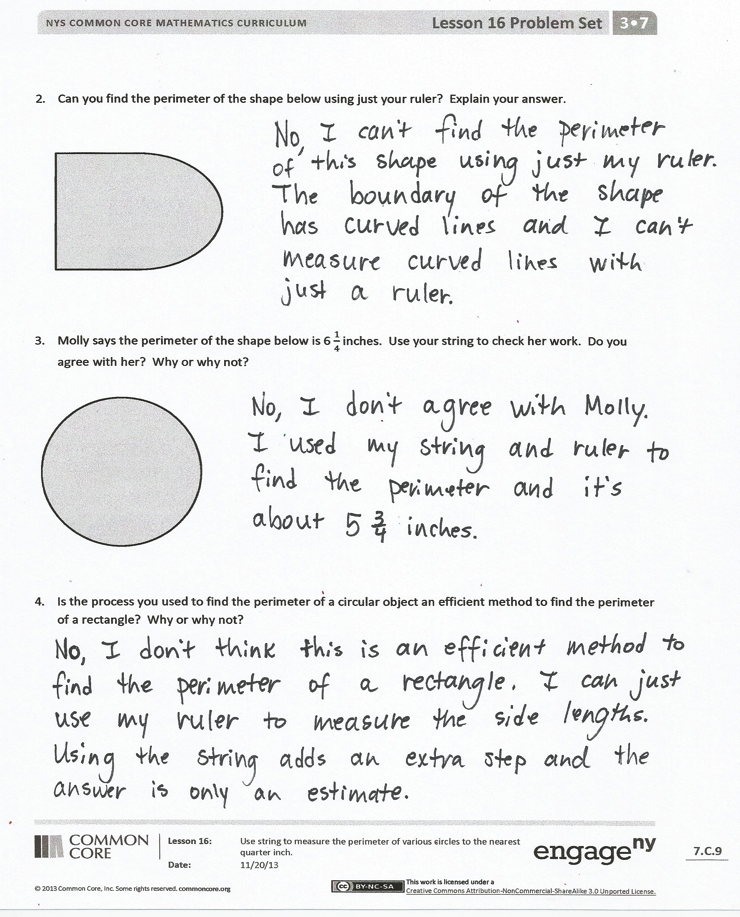 NYS COMMON CORE MATHEMATICS CURRICULUM Lesson 16 Problem Set 3•7
2. Can you find the perimeter of the shape below using just your ruler? Explain your answer.
No, I can't find the perimeter
of this shape using just my ruler.
The boundary of the shape
has curved lines and I can't
measure curved lines with
just a ruler.
3. Molly says the perimeter of the shape below is 6 1/4 inches. Use your string to check her work. Do you
agree with her? Why or why not?
No, I don't agree with Molly.
I used my string and ruler to
find the perimeter and it's
about 5 3/4 inches.
4. Is the process you used to find the perimeter of a circular object an efficient method to find the perimeter
of a rectangle? Why or why not?
No, I don't think this is an efficient method to
find the perimeter of a rectangle. I can just
use my ruler to measure the side lengths.
Using the string adds an extra step and the
answer is only an estimate.
COMMON
CORE
Lesson 16: Use string to measure the perimeter of various circles to the nearest
quarter inch.
Date: 11/20/13
engageny
7.C.9
© 2013 Common Core, Inc. Some rights reserved. commoncore.org
cc BY-NC-SA
This work is licensed under a
Creative Commons Attribution-NonCommercial-ShareAlike 3.0 Unported License.